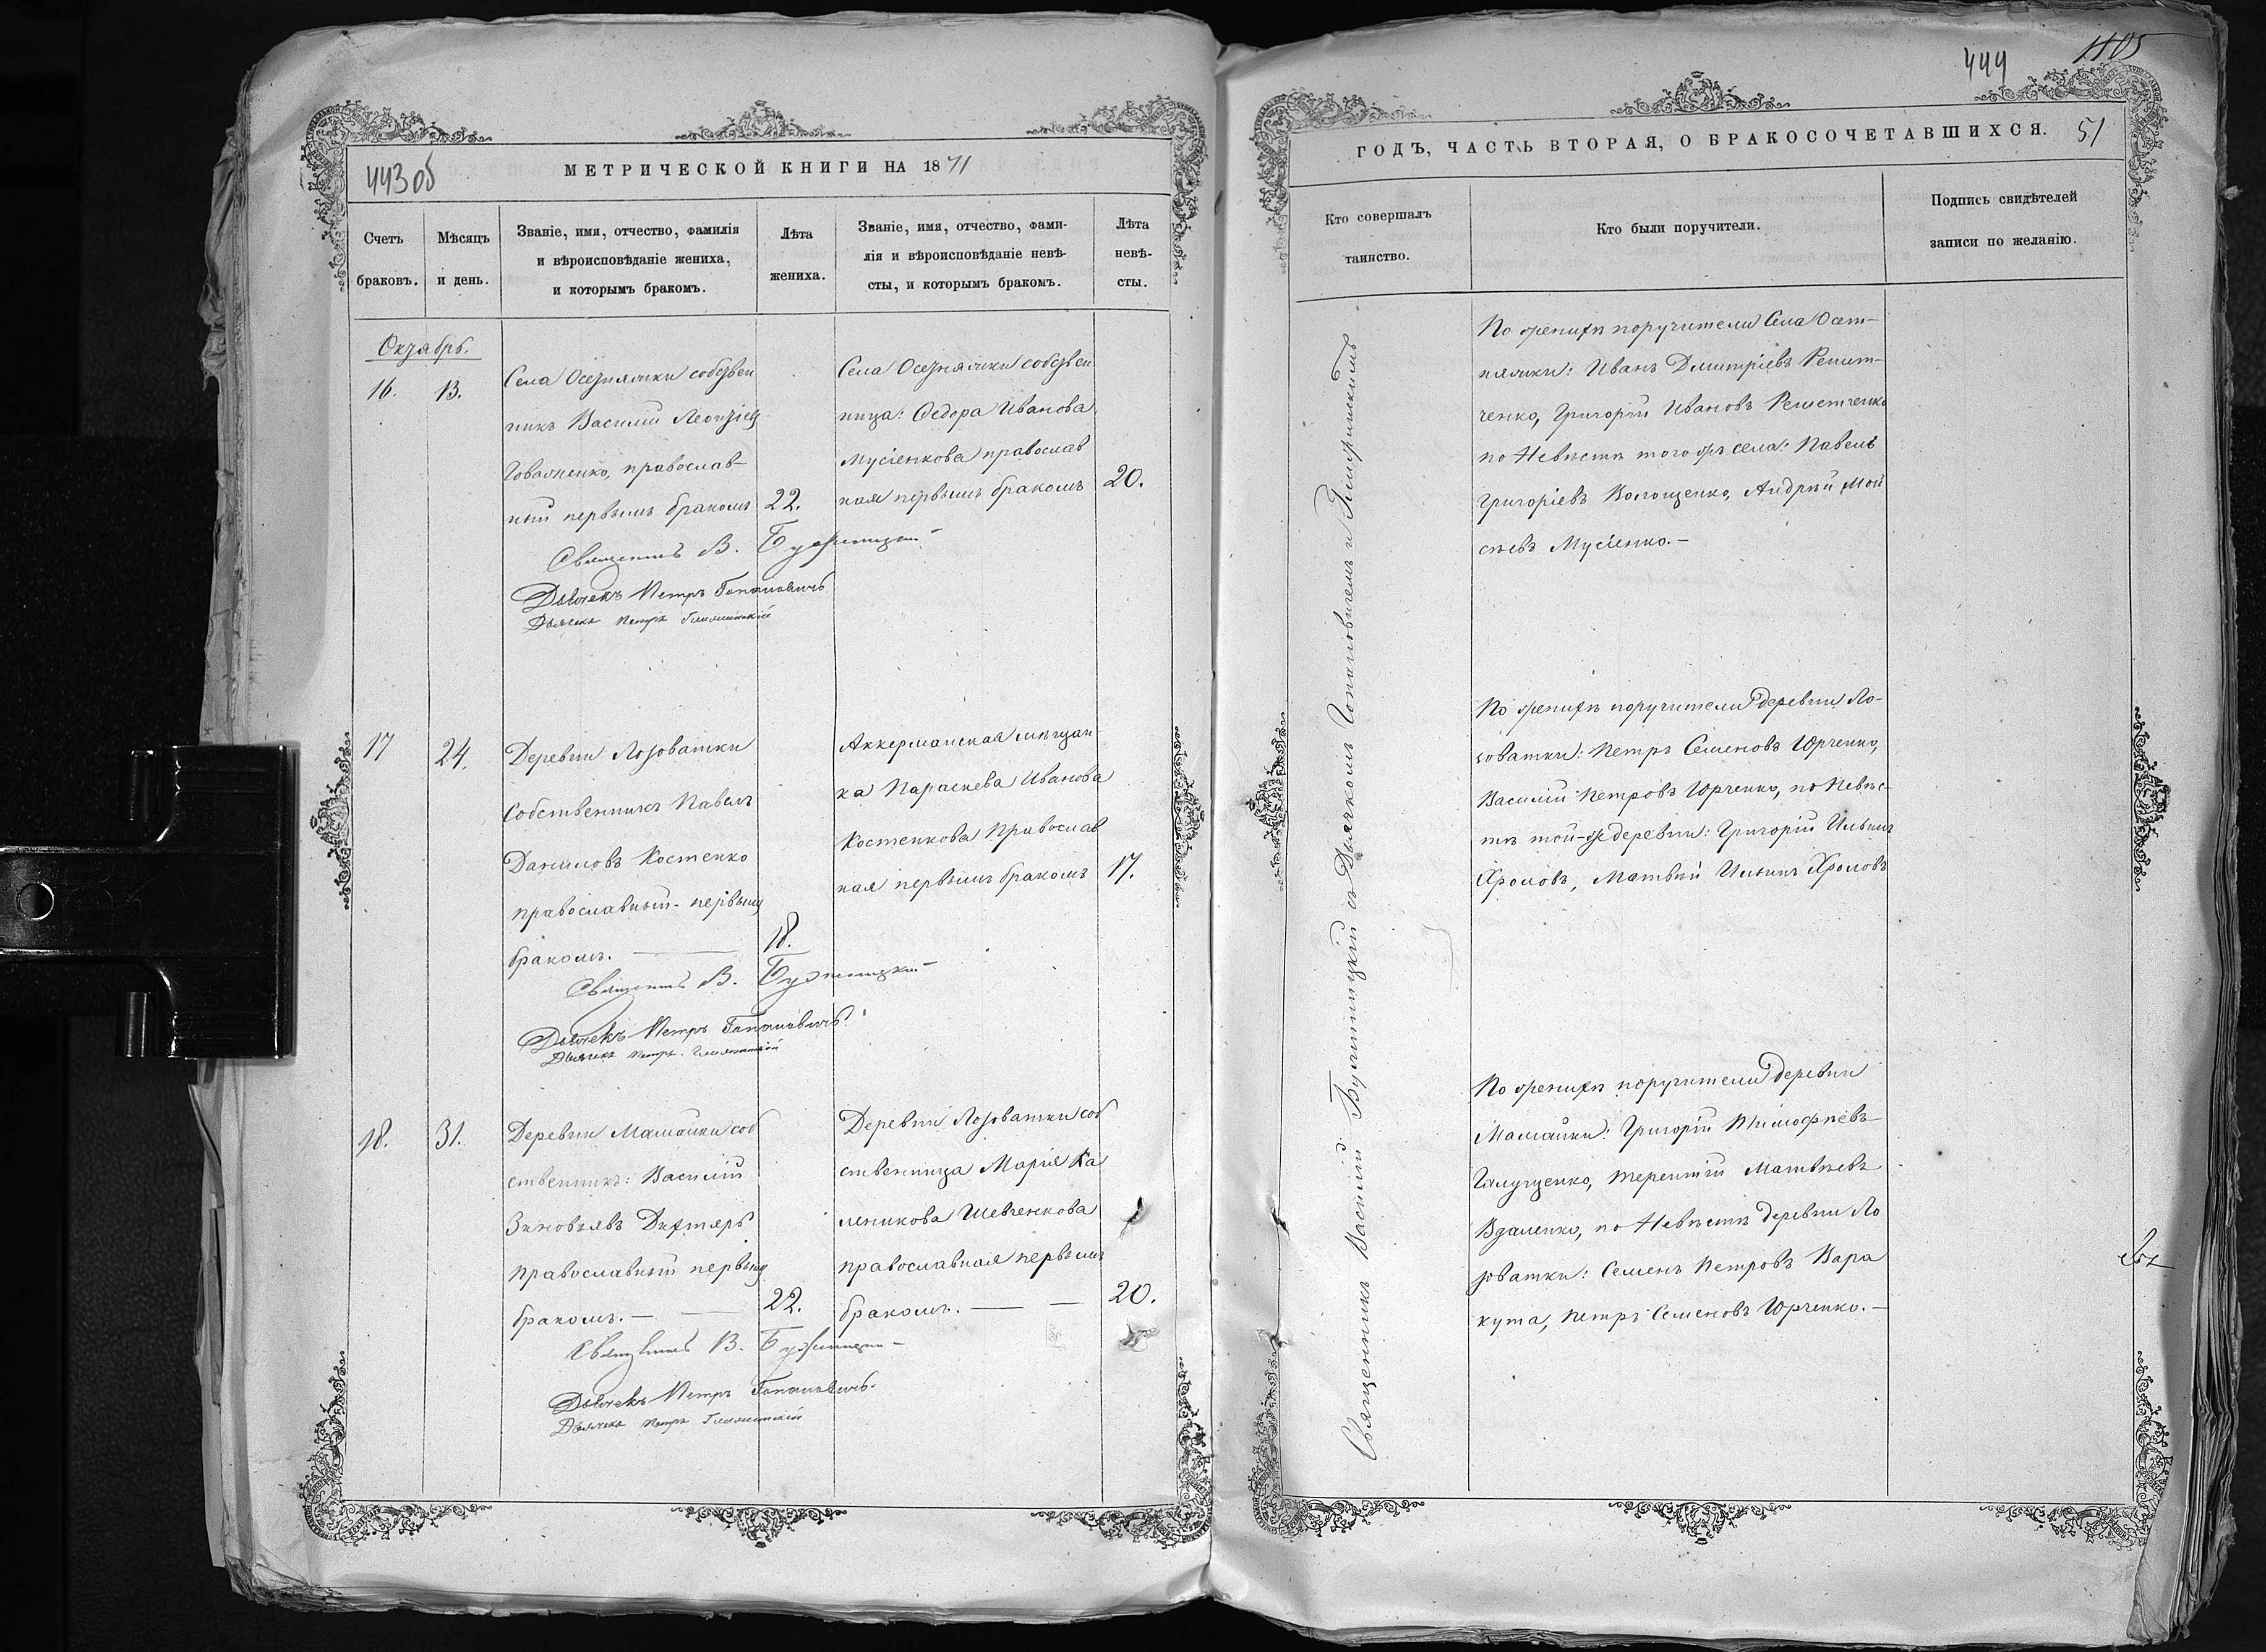 443об
МЕТРИЧЕСКОЙ КНИГИ НА 1871
Счетъ браковъ.
Мѣсяцъ и день.
Званіе, имя, отчество, фамилія
и вѣроисповѣданіе жениха,
и которымъ бракомъ.
Лѣта
жениха.
Званіе, имя, отчество, фами-
лія и вѣроисповѣданіе невѣ-
сты, и которымъ бракомъ.
Лѣта
невѣ-
сты.
Октябрь.
16.
13.
Села Осетняжки собствен
никъ Василій Леонтіев
православ-
ный первымъ бракомъ
22.
Села Осетняжки собствен
ница: Ѳедора Иванова
Мусіенкова православ
ная первымъ бракомъ
20.
Священникъ В. Бужницкій
Дьячекъ Петръ Гопановичъ
Дьячекъ Петръ
17
24.
Деревни Лозоватки
собственникъ Павелъ
Даниловъ Костенко
православный первым
бракомъ.
18.
Аккерманская мѣщан-
ка Параскева Иванова
Костенкова Православ
ная первымъ бракомъ
17.
Священникъ В. Бужницкій
Дьячекъ Петръ Гопановичъ.
Дьячекъ Петръ
18.
31.
Деревни Мамайки соб
ственникъ: Василій
Зиновьевъ Дихтярь
православный первым
бракомъ.
22.
Деревни Лозоватки соб
ственница Марія Ка
леникова Шевченкова
православная первымъ
бракомъ.
20.
Священникъ В. Бужницкій
Дьячекъ Петръ Гопановичъ.
Дьячекъ Петръ
444
1105
ГОДЪ, ЧАСТЬ ВТОРАЯ, О БРАКОСОЧЕТАВШИХСЯ.
51
Кто совершалъ
таинство.
Кто были поручители.
Подпись свидѣтелей
записи по желанію.
Священникъ Василій Бужницкій съ Дьячкомъ Гопановичемъ и
По женихѣ поручители Села Осет-
няжки: Иванъ Дмитріевъ Решет-
ченко, Григорій Ивановъ Решетченко
по Невѣстѣ того жъ села: Павелъ
Григоріевъ Волощенко, Андрей Мои
сѣевъ Мусіенко.-
По женихѣ поручители деревни Ло-
зоватки: Петръ Семеновъ Юрченко,
Василій Петровъ Юрченко, по Невѣс-
тѣ той-же деревни: Григорій Ильинъ
Хромовъ, Матвѣй Ильинъ Хромовъ
По женихѣ поручители деревни
Мамайки: Григорій Тимофѣевъ
Галущенко, Терентій Матвѣевъ
по Невѣстѣ деревни Ло
зоватки: Семенъ Петровъ Вара
кута, Петръ Семеновъ Юрченко.-